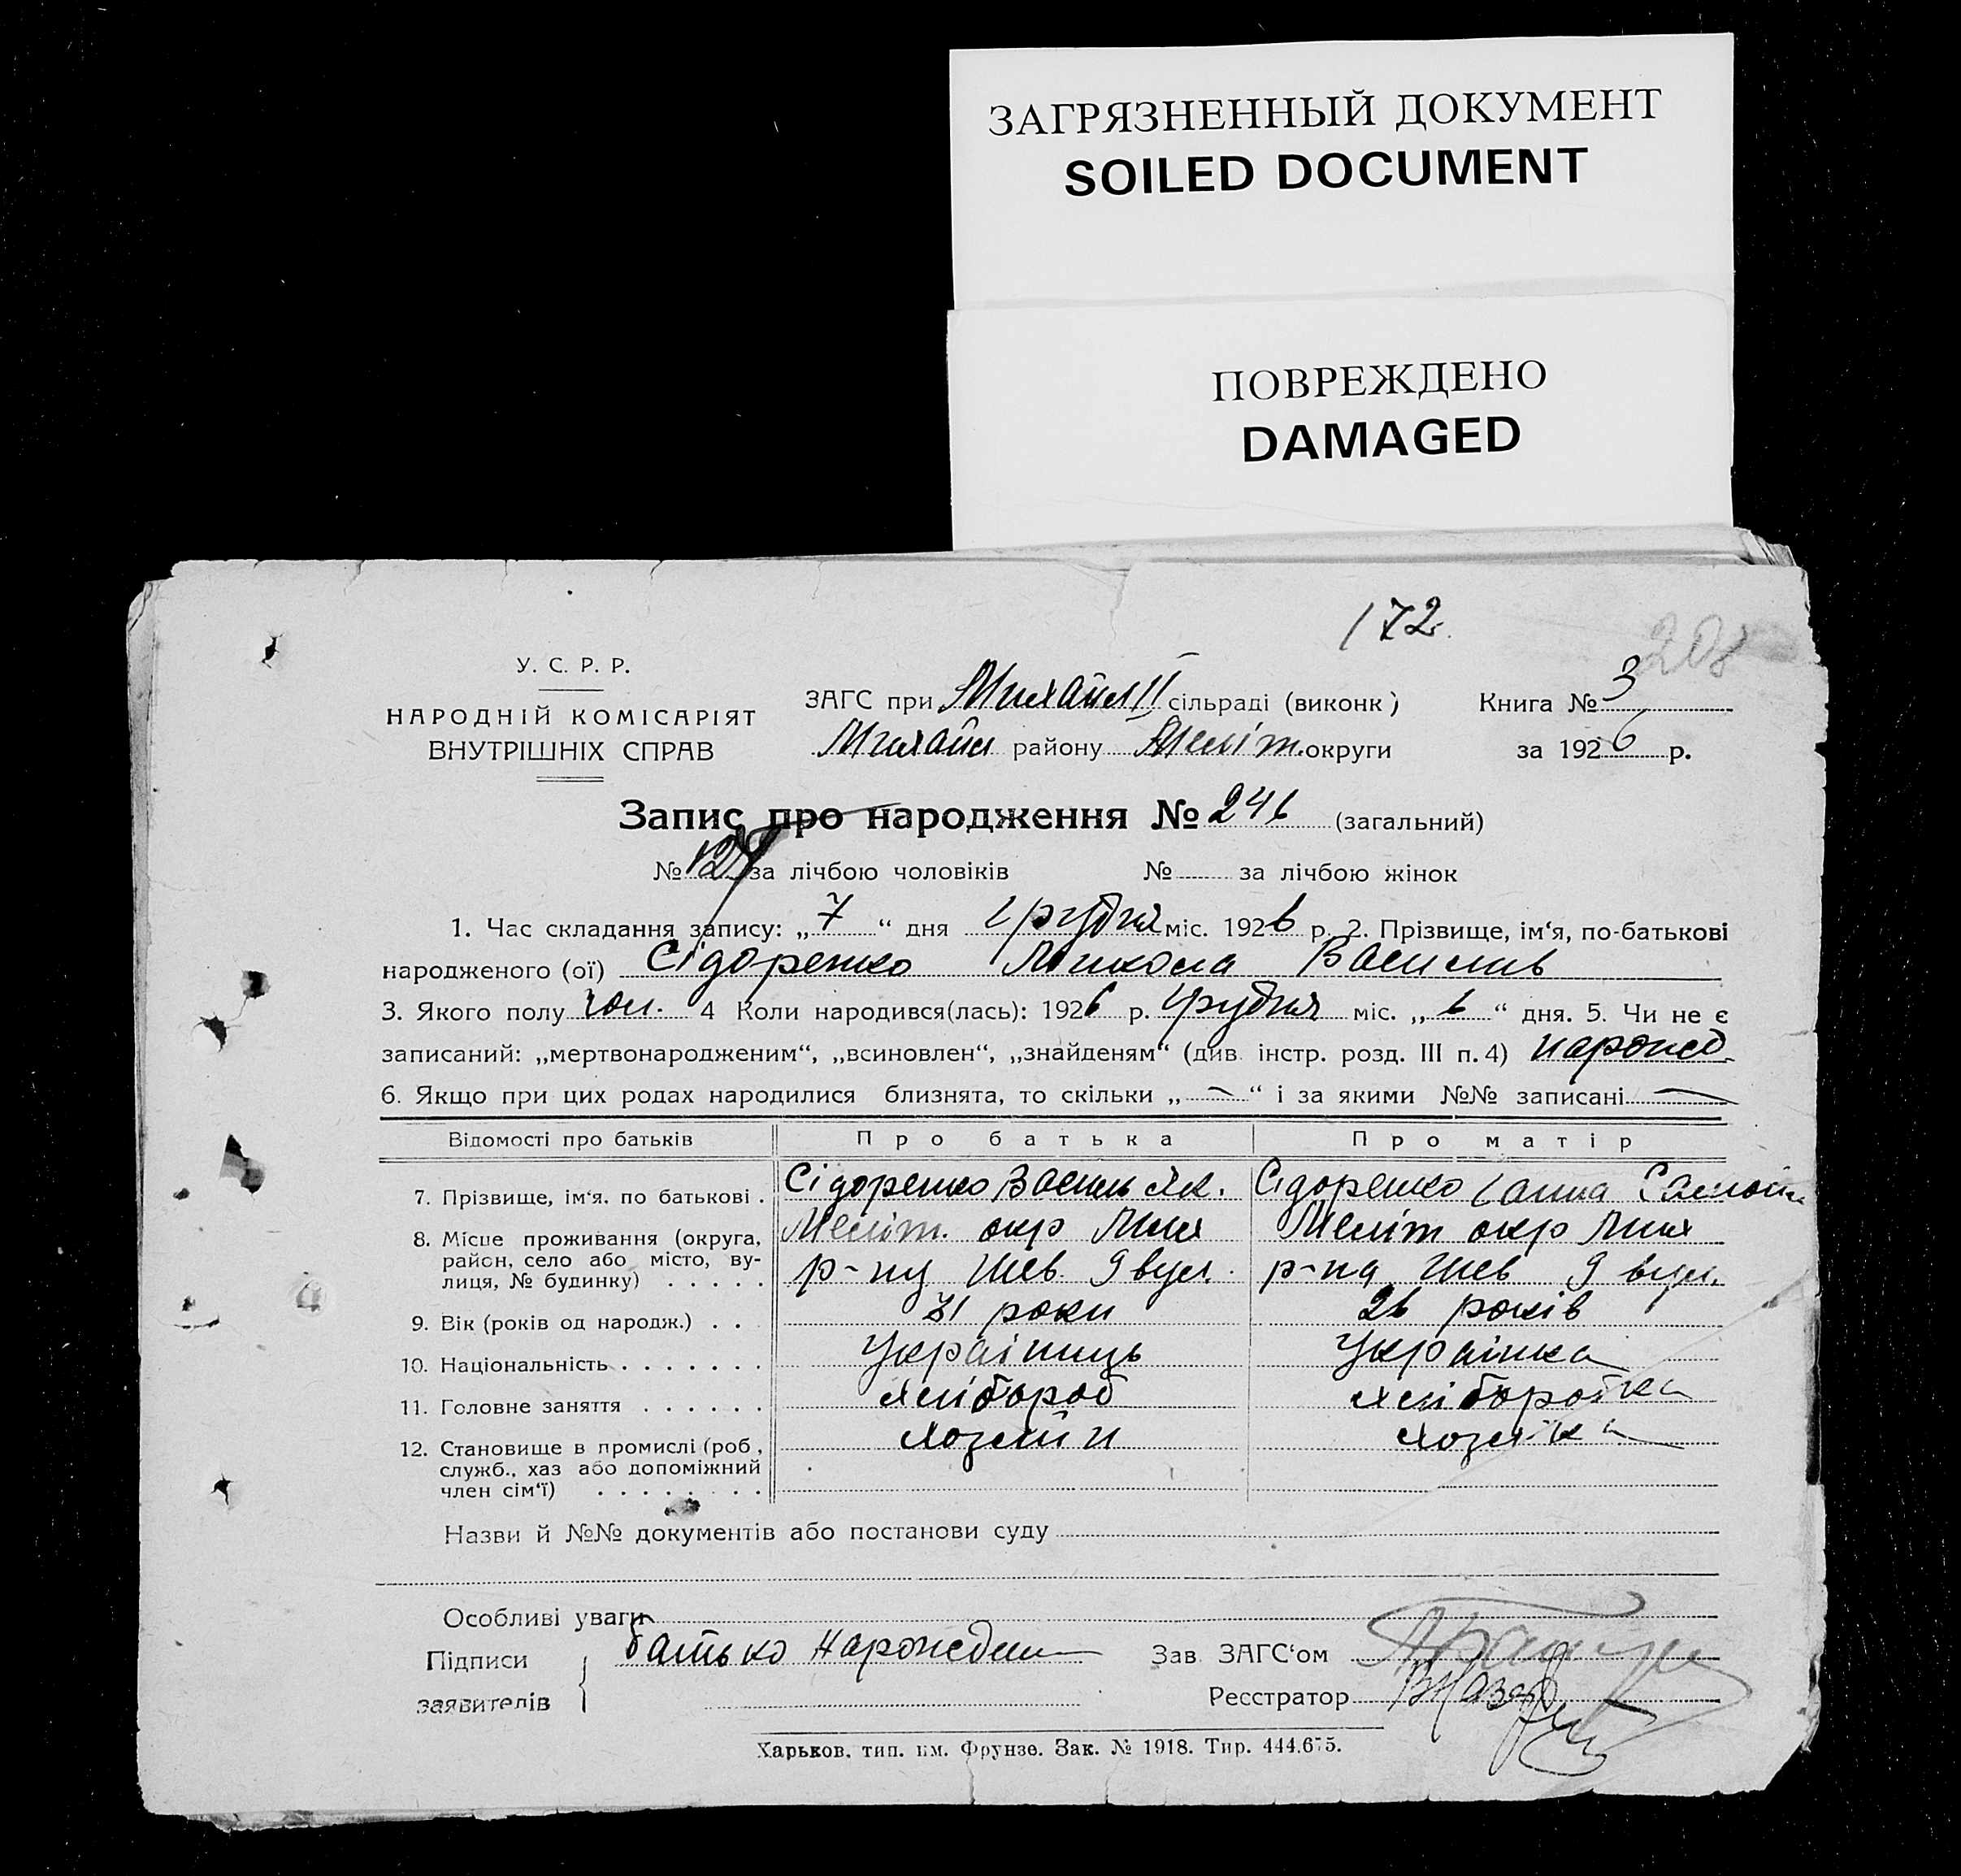 ЗАГРЯЗНЕННЫЙ ДОКУМЕНТ
SOILED DOCUMENT
ПОВРЕЖДЕНО
DAMAGED
172
208
У. С. Р. Р.
НАРОДНІЙ КОМІСАРІЯТ
ВНУТРІШНІХ СПРАВ
ЗАГС при Михайл II сільраді (виконк)
Михайл району Меліт. округи
Книга № 3
за 1926 р.
Запис про народження № 246 (загальний)
№ 127 за лічбою чоловіків № за лічбою жінок
1. Час складання запису: „7“ дня грудня міс. 1926 р. 2. Прізвище, ім‘я, по-батькові
народженого (ої) Сідоренко Микола Василив
3. Якого полу чол. 4 Коли народився(лась): 1926 р. грудня міс. „6“ дня. 5. Чи не є
записаний: „мертвонародженим“, „всиновлен“, „знайденям“ (див. інстр. розд. III п. 4) нарожед
6. Якщо при цих родах народилися близнята, то скільки „—“ і за якими №№ записані —
Відомості про батьків Про батька Про матір
7. Прізвище, ім‘я. по батькові . Сідоренко Василь Як. Сідоренко Ганна
8. Місце проживання (округа, Меліт. окр Мих Меліт окр Мих
район, село або місто, ву- р-ну Шев 9 вул. р-на Шев 9 вул.
лиця, № будинку) . . . . .
9. Вік (років од народж.) . . . 31 роки 26 років
10. Національність . . . . . . . Українць Українка
11. Головне заняття . . . . . . хлібороб хлібородка
12. Становище в промислі (роб., хозяін хозяйка
служб., хаз або допоміжний
член сім‘ї) . . . . . . . .
Назви й №№ документів або постанови суду
Особливі уваги
Підписи батько нарожден
заявителів
Зав. ЗАГС‘ом
Реєстратор
Харьков, тип. им. Фрунзе. Зак. № 1918. Тир. 444.675.